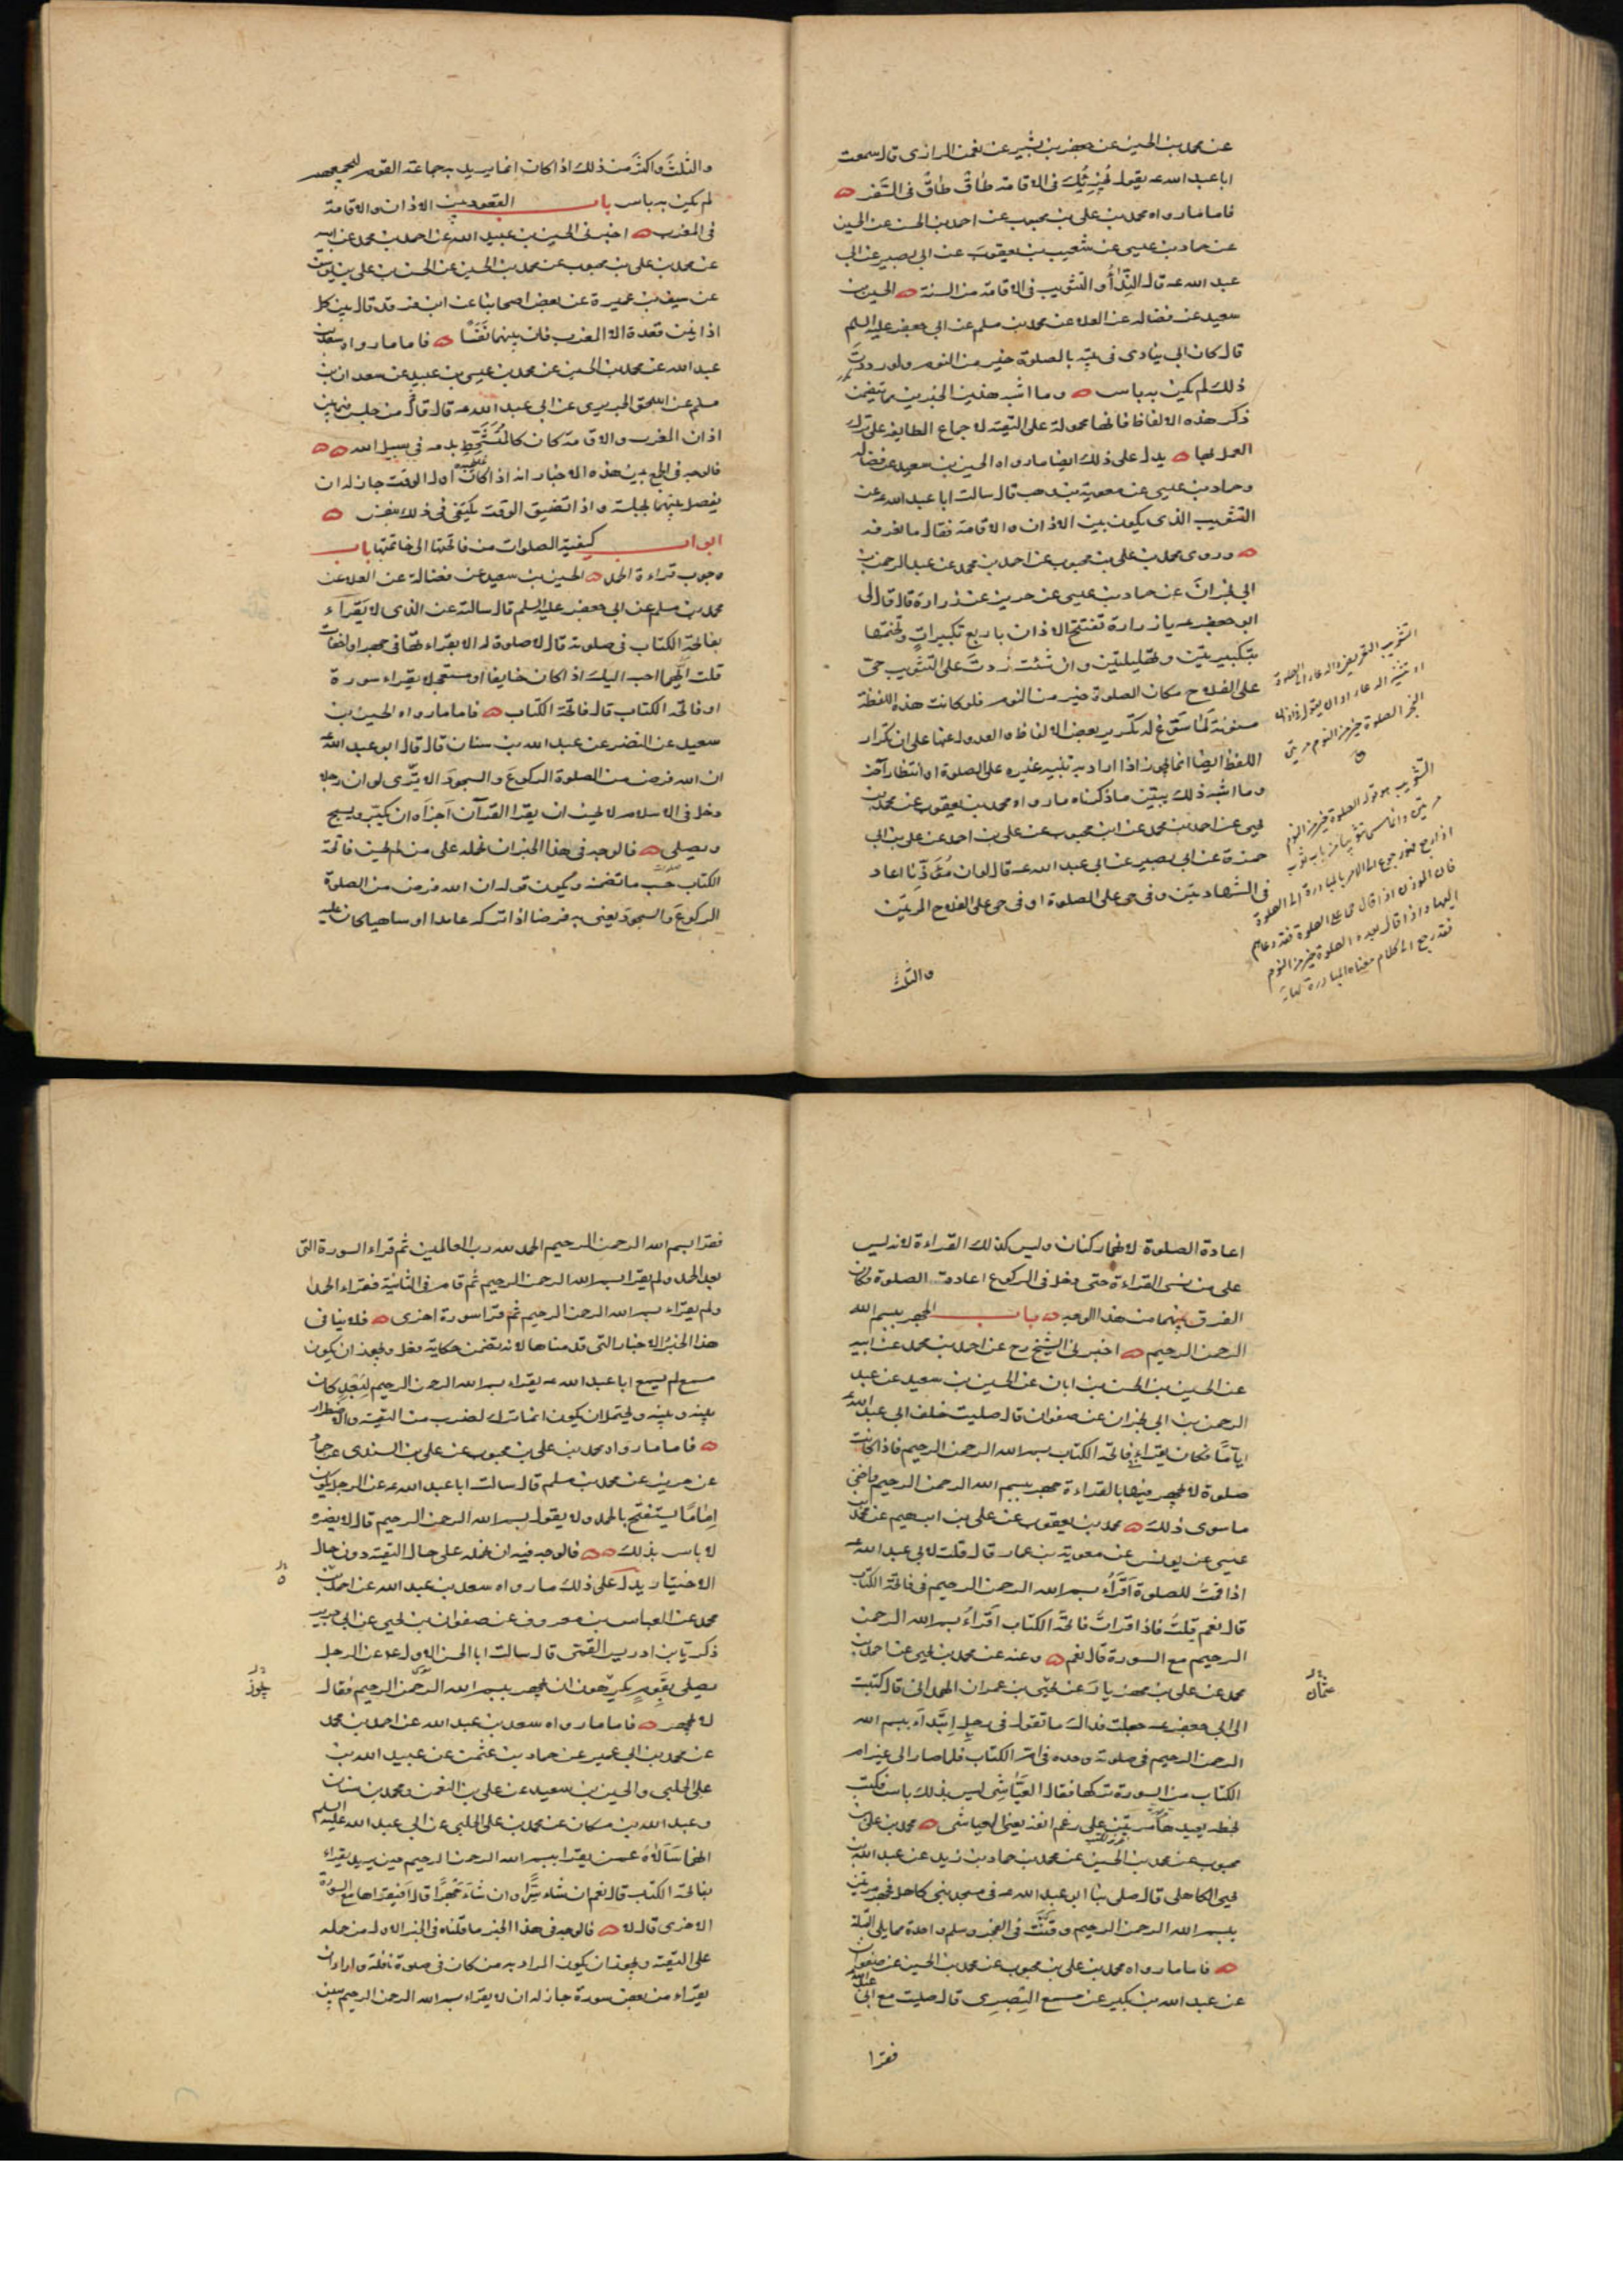 عن محمد بن الحسين عن جعفر بن بشير عن نعمن الرازى قال سمعت
ابا عبد الله عه يقول يُجْزِئُك فى الاقامة طاقٌ طاقٌ فى السَّفر
فاما ما رواه محمد بن على بن محبوب عن احمد بن الحسن عن الحسين
عن حماد بن عيسى عن شعيب بن يعقوب عن ابى بصير عن ابى
عبد الله عه قال النِّدَأُ و التثويب فى الاقامة من السنة الحسين بن
سعيد عن فضالة عن العلا عن محمد بن مسلم عن ابى جعفر عليه السلم
قال كان ابى ينادى فى بيته بالصلوة خير من النوم ولو رددتَ
ذلك لم يكن به باس وما اشبه هذين الخبرين مما يتضمن
ذكر هذه الالفاظ فانها محمولة على التقية لاجماع الطايفة على ترك
العمل بها يدل على ذلك ايضا ما رواه الحسين بن سعيد عن فضالة
وحماد بن عيسى عن معوية بن وهب قال سالت ابا عبد الله عه عن
التثويب الذى يكون بين الاذان والاقامة فقال ما نعرفه
وروى محمد بن على بن محبوب عن احمد بن محمد عن عبد الرحمن بن
ابى نجران عن حماد بن عيسى عن حريز عن زرارة قال قال لى
ابو جعفر عه يا زرارة تفتتح الاذان باربع تكبيراتٍ وتختمها
بتكبيرتين وتهليلتين وان شئت زدتَ على التثويب حىّ
على الفلاح مكان الصلوة خير من النوم فلو كانت هذه اللفظة
مسنونة لما سَوَّغ له تكرير بعض الالفاظ والعدول عنها على ان تكرار
اللفظ ايضا انما يجوز اذا اراد به تنبيه غيره على الصلوة او انتظار آخر
وما اشبه ذلك يبيّن ما ذكرناه ما رواه محمد بن يعقوب عن محمد بن
يحيى عن احمد بن محمد عن ابن محبوب عن على بن احمد عن على بن ابى
حمزة عن ابى بصير عن ابى عبد الله عه قال لوان مُؤَذِّنا اعاد
فى الشهادتين وفى حى على الصلوة او فى حى على الفلاح المرتين
والثلث
والثلثَ واكثرَ من ذلك اذا كان انما يريد به جماعة القوم ليجمعهم
لم يكن به باس باب القعود بين الاذان والاقامة
فى المغرب اخبرنى الحسين بن عبيد الله عن احمد بن محمد عن ابيه
عن محمد بن على بن محبوب عن محمد بن الحسين عن الحسن بن على بن يوسف
عن سيف بن عميرة عن بعض اصحابنا عن ابن فرقد قال بين كل
اذانين قعدة الا المغرب فان بينهما نَفَسًا فاما ما رواه سعد بن
عبد الله عن محمد بن الحسين عن محمد بن عيسى بن عبيد عن سعدان بن
مسلم عن اسحق الجريرى عن ابى عبد الله عه قال قال من جلس فيما بين
اذان المغرب والاقامة كان كالمُتَشَحِّطِ بدمه فى سبيل الله
فالوجه فى الجمع بين هذه الاخبار انه اذا كان اول الوقت جاز له ان
يفصل بينهما بجلسة واذا تضيق الوقت يكتفى فى ذلك بنفس
ابواب كيفية الصلوات من فاتحتها الى خاتمتها باب
وجوب قراءة الحمد الحسين بن سعيد عن فضالة عن العلا عن
محمد بن مسلم عن ابى جعفر عليه السلم قال سالته عن الذى لا يَقرَاء
بفاتحة الكتاب فى صلوته قال لا صلوة له الا يقراء بها فى جهر او اخفات
قلت ايّهما احب اليك اذا كان خايفا او مستعجلا يقراء سورة
او فاتحة الكتاب قال فاتحة الكتاب فاما ما رواه الحسين بن
سعيد عن النضر عن عبد الله بن سنان قال قال ابو عبد الله عه
ان الله فرض من الصلوة الركوعَ والسجودَ الا يَرَى لو ان رجلا
دخل فى الاسلام لا يحسن ان يقرا القرآن اجزأه ان يكبّر ويسبح
ويصلى فالوجه فى هذا الخبر ان نحمله على من لم يحسن فاتحة
الكتاب حسب ما تضمنه ويكون قوله ان الله فرض من الصلوة
الركوعَ والسجودَ يعنى به فرضا اذا تركه عامدا او ساهيا كان عليه
اعادة الصلوة لانهما ركنان وليس كذلك القراءة لانه ليس
على من نسى القراءة حتى دخل فى الركوع اعادة الصلوة فكان
الفرق بينهما من هذا الوجه باب الجهر ببسم الله
الرحمن الرحيم اخبرنى الشيخ رح عن احمد بن محمد عن ابيه
عن الحسين بن الحسن بن ابان عن الحسين بن سعيد عن عبد
الرحمن بن ابى نجران عن صفوان قال صليت خلف ابى عبد الله عه
ايّامًا فكان يقراء فى فاتحة الكتاب بسم الله الرحمن الرحيم فاذا كانت
صلوة لا يجهر فيها بالقراءة جهر ببسم الله الرحمن الرحيم واخفى
ما سوى ذلك محمد بن يعقوب عن على بن ابرهيم عن محمد بن
عيسى عن يونس عن معوية بن عمار قال قلت لابى عبد الله عه
اذا قمتُ للصلوة اَقرَأُ بسم الله الرحمن الرحيم فى فاتحة الكتاب
قال نعم قلت فاذا قراتُ فاتحة الكتاب اَقراءُ بسم الله الرحمن
الرحيم مع السورة قال نعم وعنه عن محمد بن يحيى عن احمد بن
محمد عن على بن مهزيار عن يحيى بن عمران الهمدانى قال كتبت
الى ابى جعفر عه جعلت فداك ما تقول فى رجل ابتدأ ببسم الله
الرحمن الرحيم فى صلوته وحده فى ام الكتاب فلما صار الى غير ام
الكتاب من السورة تركها فقال العَيَّاشِى ليس بذلك باس فكتب
بخطه يعيدها مرتين على رغم انفه يعنى العياشى محمد بن على بن
محبوب عن محمد بن الحسين عن محمد بن حماد بن زيد عن عبد الله بن
يحيى الكاهلى قال صلى بنا ابو عبد الله عه فى مسجد بنى كاهل فجهر مرتين
ببسم الله الرحمن الرحيم وقنت فى الفجر وسلم واحدة مما يلى القبلة
فاما ما رواه محمد بن على بن محبوب عن محمد بن الحسين عن صفوان
عن عبد الله بن بكير عن مسمع البصرى قال صليت مع ابى عبد الله
فقرا
فقرا بسم الله الرحمن الرحيم الحمد لله رب العالمين ثم قراء السورة التى
بعد الحمد ولم يقرا بسم الله الرحمن الرحيم ثم قام فى الثانية فقراء الحمد
ولم يقراء بسم الله الرحمن الرحيم ثم قرا سورة اخرى فلا ينافى
هذا الخبرُ الاخبار التى قدمناها لانه تضمن حكاية فعل ويجوز ان يكون
مسمع لم يسمع ابا عبد الله عه يقراء بسم الله الرحمن الرحيم لِبُعْدٍ كان
بينه وبينه ويحتمل ان يكون انما ترك لضرب من التقية والاضطرار
فاما ما رواه محمد بن على بن محبوب عن على بن السندى عن حماد
عن حريز عن محمد بن مسلم قال سالت ابا عبد الله عه عن الرجل يكون
اِمامًا يستفتح بالحمد ولا يقول بسم الله الرحمن الرحيم قال لا يضره
لا باس بذلك فالوجه فيه ان نحمله على حال التقية دون حال
الاختيار يدل على ذلك ما رواه سعد بن عبد الله عن احمد بن
محمد عن العباس بن معروف عن صفوان بن يحيى عن ابى جرير
ذكريّا بن ادريس القمّى قال سالت ابا الحسن الاول عه عن الرجل
يصلى بقومٍ يكرهون ان يجهر ببسم الله الرحمن الرحيم فقال
لا يجهر فاما ما رواه سعد بن عبد الله عن احمد بن محمد
عن محمد بن ابى عمير عن حماد بن عثمن عن عبيد الله بن
على الحلبى والحسين بن سعيد عن على بن النعمن ومحمد بن سنان
وعبد الله بن مسكان عن محمد بن على الحلبى عن ابى عبد الله عليه السلم
انهما سَألاهُ عمن يقرا ببسم الله الرحمن الرحيم حين يريد يقراء
بفاتحة الكتاب قال نعم ان شاء سِرًّا وان شاءَ جَهْرًا قال افيقراها مع السورة
الاخرى قال لا فالوجه فى هذا الخبر ما قلناه فى الخبر الاول من حمله
على التقية ويجوز ان يكون المراد به من كان فى صلوة نافلة واراد ان
يقراء من بعض سورة جاز له ان لا يقراء بسم الله الرحمن الرحيم يبين